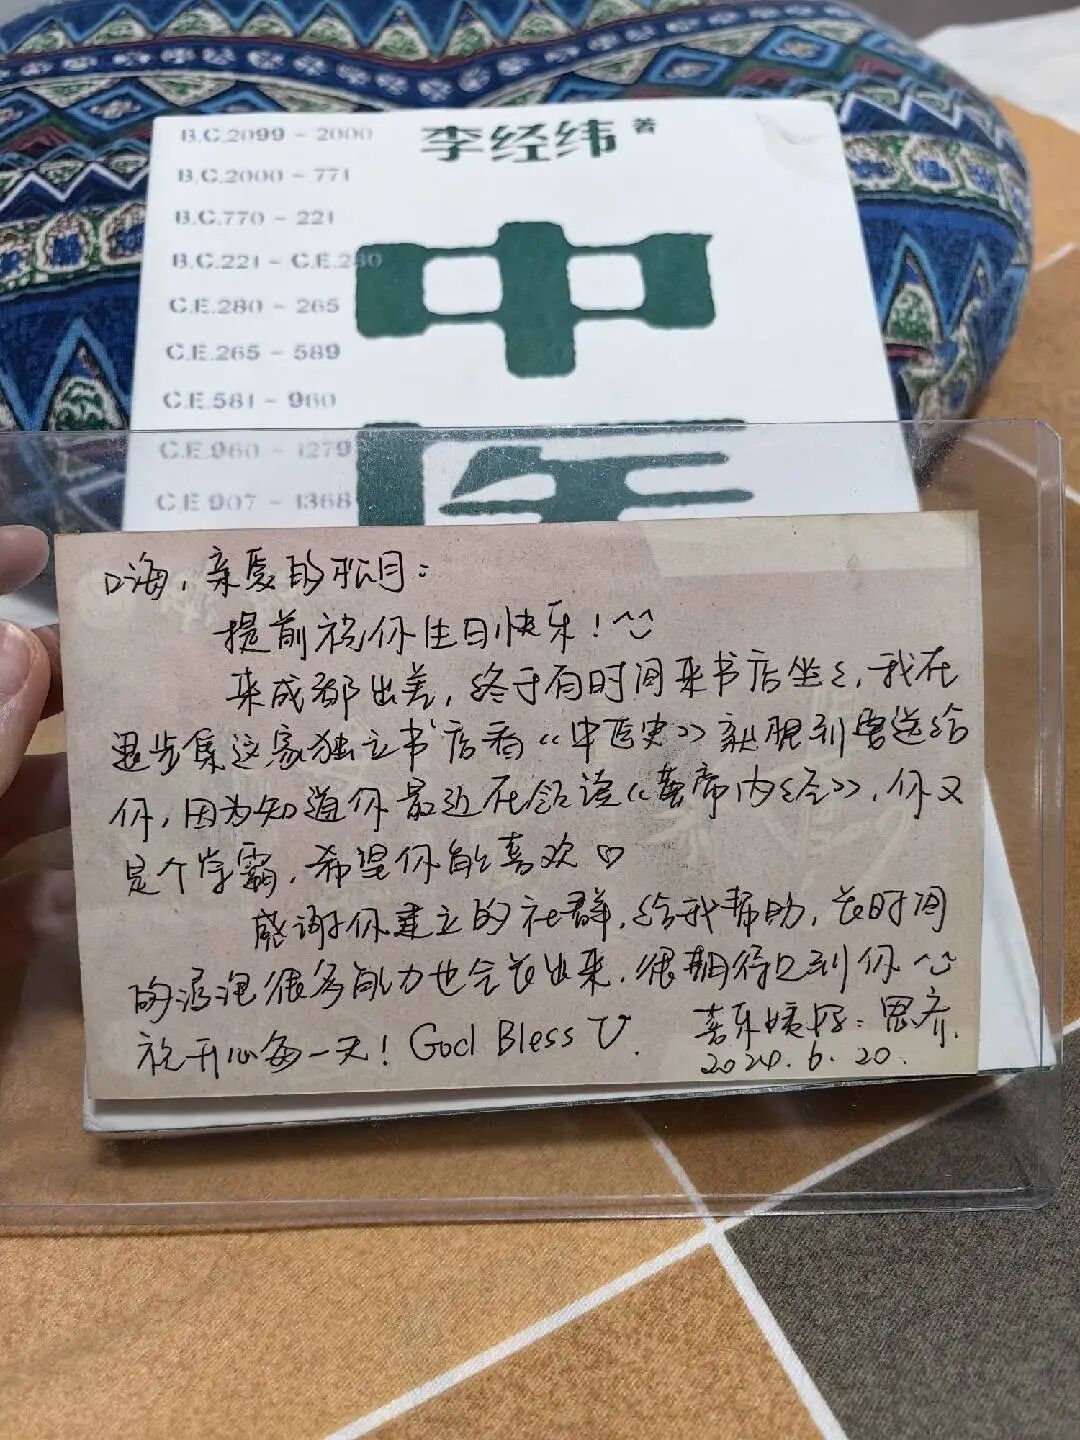 B.C.2099 - 2000
B.C.2000 - 771
B.C.770 - 221
B.C.221 - C.E.280
C.E.280 - 265
C.E.265 - 589
C.E.581 - 960
C.E.960 - 1279
C.E.907 - 1368
李经纬 著
中
医
口海，亲爱的松月：
提前祝你生日快乐！^^
来成都出差，终于有时间来书店坐坐，我在
思步集这家独立书店看《中医史》就想到要送给
你，因为知道你最近在领读《黄帝内经》，你又
是个学霸，希望你能喜欢♡
感谢你建立的社群，给我帮助，长时间
的浸泡很多能力也会长出来，很期待见到你~
祝开心每一天！God Bless U.
喜乐 思齐.
2024.6.20.